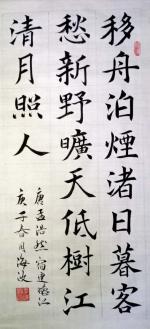 移舟泊煙渚日暮客
愁新野曠天低樹江
清月照人
唐孟浩然宿建德江
庚子春月海波